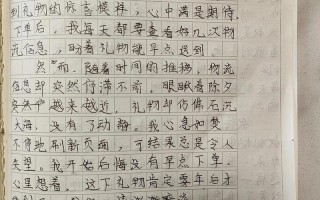 到礼物的惊喜模样，心中满是期待。
下单后，我每天都要查看好几次物
流信息，盼着礼物能早点送到
然而，随着时间的推移，物流
信息却突然停滞不前。眼眺着除夕
越来越近，礼物却仿佛石沉
大海，没有了动静。我心急如焚
不停地刷新页面，可结果总是令人
失望。我开始后悔没有早点下单，
心里想着，这下礼物肯定要年后才